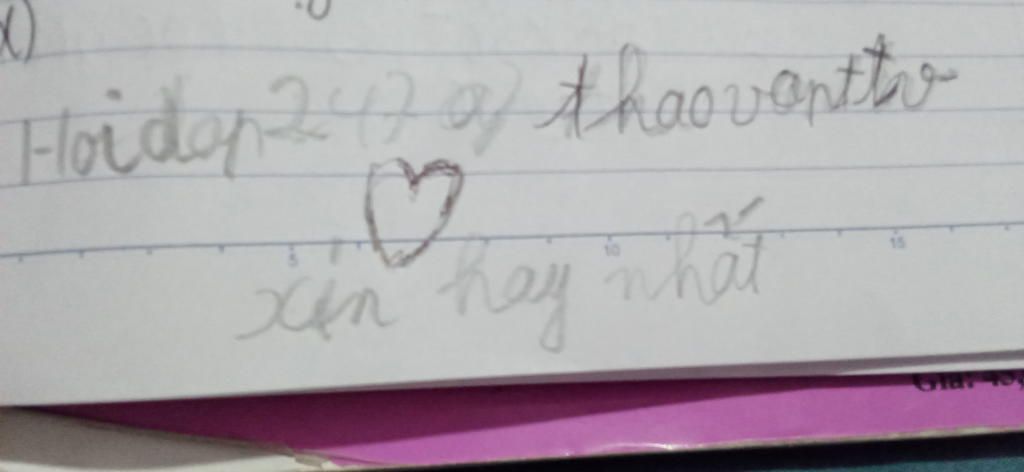 Hoidap247 thaovanttv
xin hay nhất
5 10 15
Giá: 48